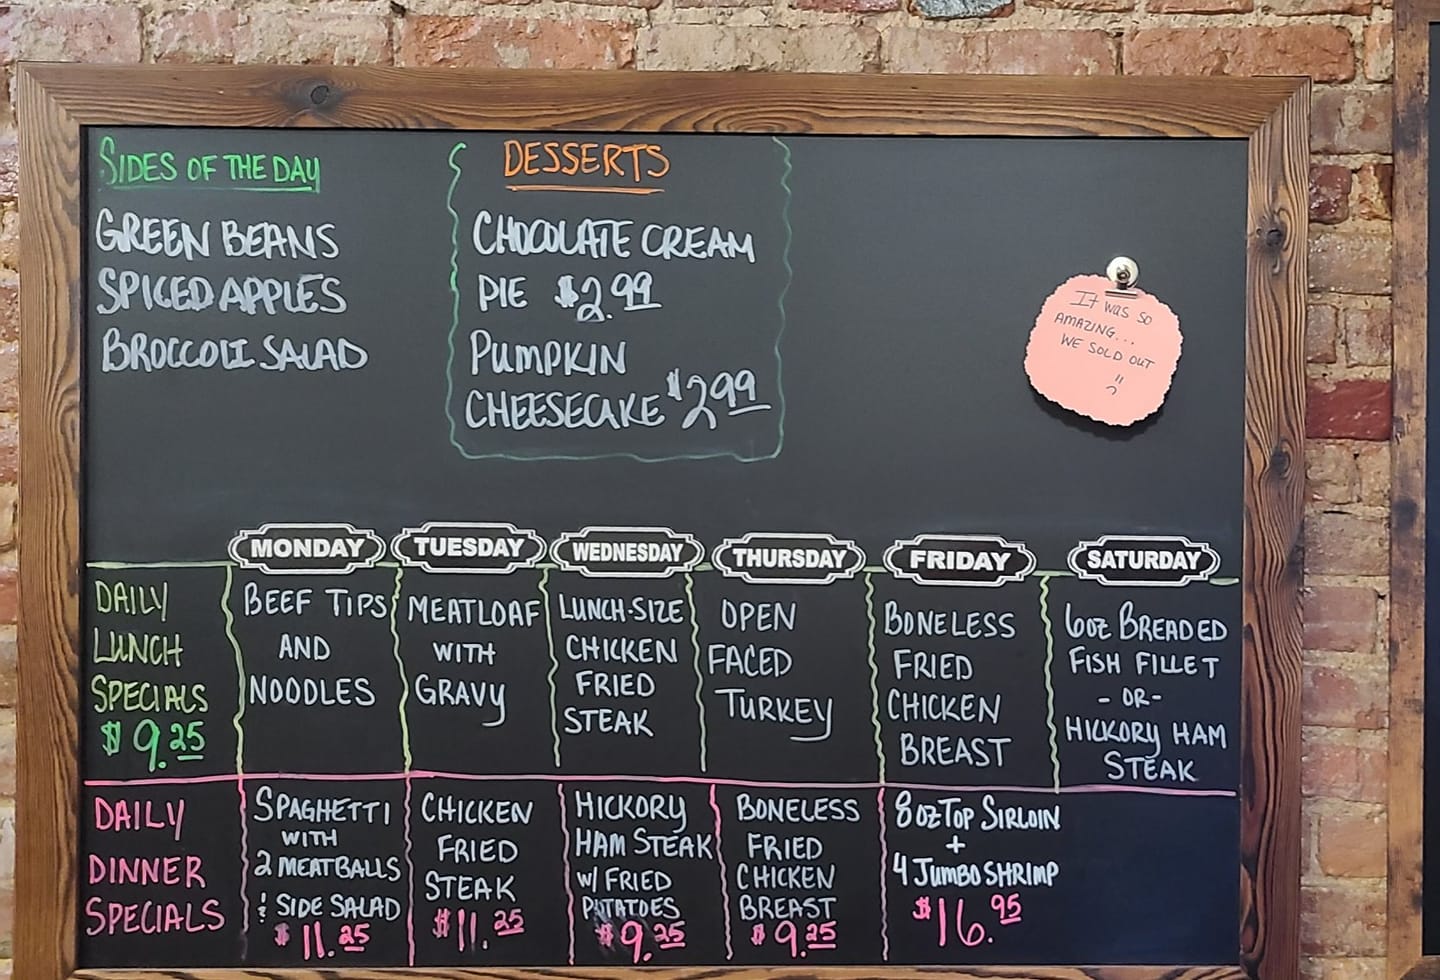 SIDES OF THE DAY
GREEN BEANS
SPICED APPLES
BROCCOLI SALAD
DESSERTS
CHOCOLATE CREAM
PIE $2.99
PUMPKIN
CHEESECAKE $2.99
IT WAS SO
AMAZING...
WE SOLD OUT
MONDAY
TUESDAY
WEDNESDAY
THURSDAY
FRIDAY
SATURDAY
DAILY
LUNCH
SPECIALS
$9.25
BEEF TIPS
AND
NOODLES
MEATLOAF
WITH
GRAVY
LUNCH-SIZE
CHICKEN
FRIED
STEAK
OPEN
FACED
TURKEY
BONELESS
FRIED
CHICKEN
BREAST
6OZ BREADED
FISH FILLET
-OR-
HICKORY HAM
STEAK
DAILY
DINNER
SPECIALS
SPAGHETTI
WITH
2 MEATBALLS
& SIDE SALAD
$11.25
CHICKEN
FRIED
STEAK
$11.25
HICKORY
HAM STEAK
W/ FRIED
POTATOES
$9.25
BONELESS
FRIED
CHICKEN
BREAST
$9.25
8OZ TOP SIRLOIN
+
4 JUMBO SHRIMP
$16.95